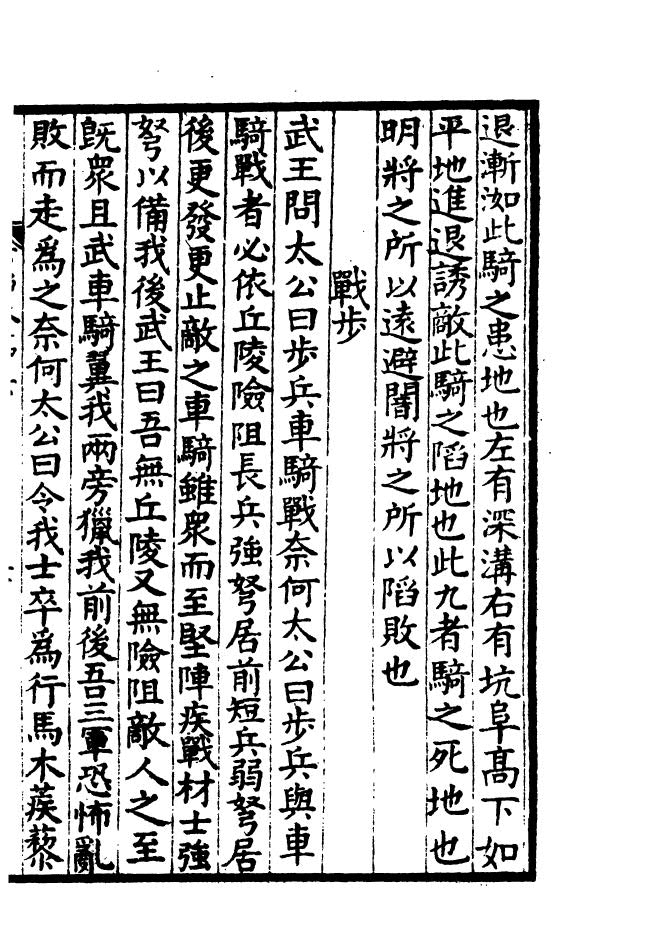 退漸洳此騎之患地也左有深溝右有坑阜髙下如
平地進退誘敵此騎之陷地也此九者騎之死地也
明將之所以遠避闇將之所以陷敗也
戰步
武王問太公曰步兵車騎戰奈何太公曰步兵與車
騎戰者必依丘陵險阻長兵強弩居前短兵弱弩居
後更發更止敵之車騎雖衆而至堅陣疾戰材士強
弩以備我後武王曰吾無丘陵又無險阻敵人之至
旣衆且武車騎翼我兩旁獵我前後吾三軍恐怖亂
敗而走爲之奈何太公曰令我士卒爲行馬木蒺藜